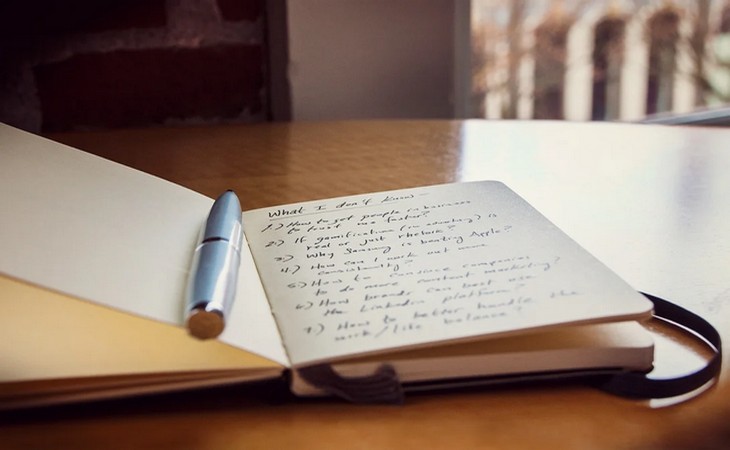 What I don't know —
1) How to get people in business
to trust me faster?
2) If gamification (in education) is
real or just rhetoric?
3) Why Samsung is beating Apple?
4) How can I work out more
consistently?
5) How to convince companies
to do more content marketing?
6) How brands can best use
the LinkedIn platform?
7) How to better handle the
work/life balance?